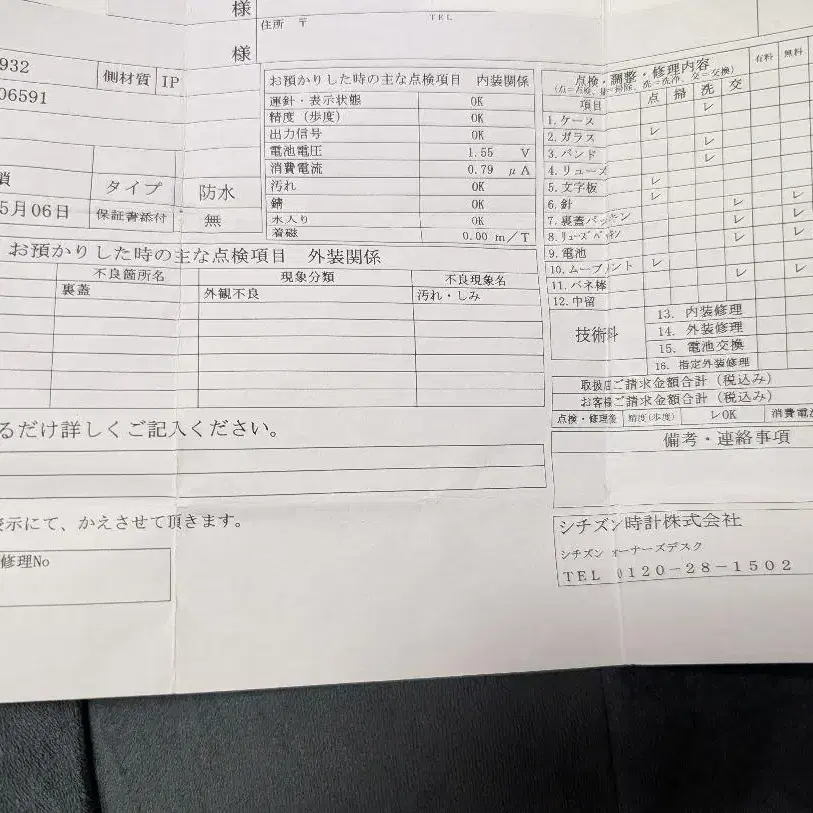 様
住所 〒 TEL
様
932 側材質 IP
06591
お預かりした時の主な点検項目 内装関係
運針・表示状態 OK
精度(歩度) OK
出力信号 OK
電池電圧 1.55 V
消費電流 0.79 μA
汚れ OK
錆 OK
水入り OK
着磁 0.00 m/T
タイプ 防水
5月06日 保証書添付 無
お預かりした時の主な点検項目 外装関係
不良箇所名 現象分類 不良現象名
裏蓋 外観不良 汚れ・しみ
るだけ詳しくご記入ください。
表示にて、かえさせて頂きます。
修理No
点検・調整・修理内容 有料 無料
項目 点 掃 洗 交
1.ケース
2.ガラス
3.バンド
4.リューズ
5.文字板
6.針
7.裏蓋パッキン
8.リューズパッキン
9.電池
10.ムーブメント
11.バネ棒
12.中留
技術料
13. 内装修理
14. 外装修理
15. 電池交換
16. 指定外装修理
取扱店ご請求金額合計(税込み)
お客様ご請求金額合計(税込み)
点検・修理後 精度(歩度) レOK 消費電
備考・連絡事項
シチズン時計株式会社
シチズン オーナーズデスク
TEL 0120-28-1502